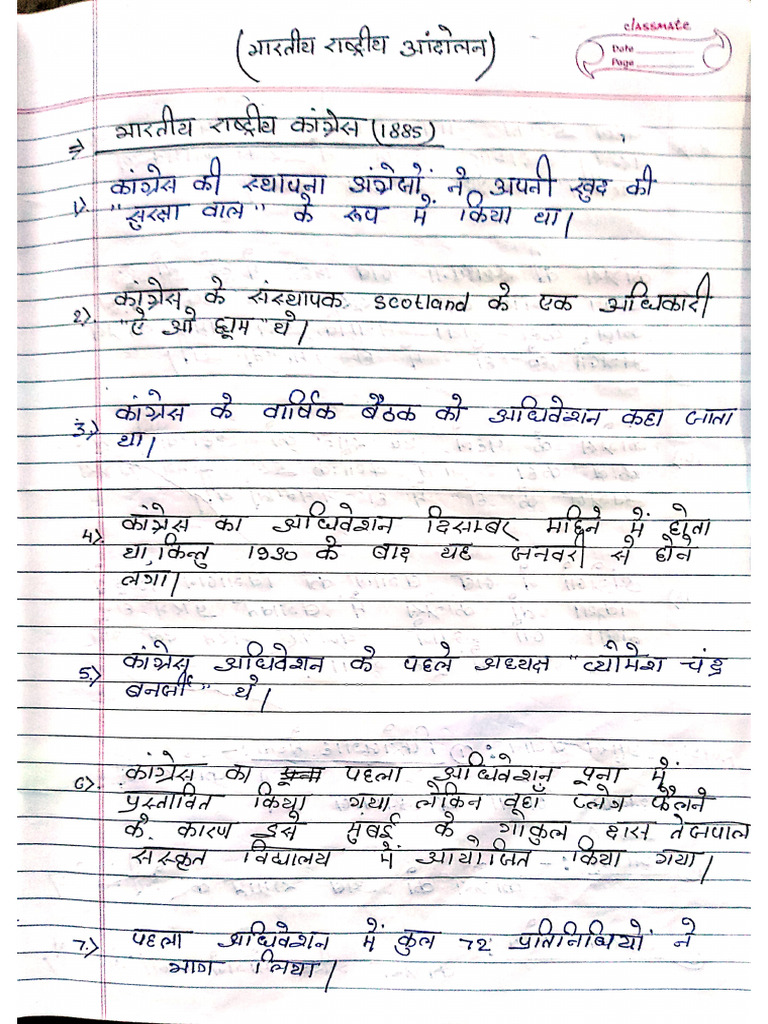 classmate
Date
Page
(भारतीय राष्ट्रीय आंदोलन)
=> भारतीय राष्ट्रीय कांग्रेस (1885)
कांग्रेस की स्थापना अंग्रेजों ने अपनी खुद की
1). "सुरक्षा वाल" के रूप में किया था।
कांग्रेस के संस्थापक scotland के एक अधिकारी
2). "ऐ ओ ह्यूम" थे।
कांग्रेस के वार्षिक बैठक को अधिवेशन कहा जाता
3.) था।
कांग्रेस का अधिवेशन दिसम्बर महिने में होता
4). था, किन्तु 1930 के बाद यह जनवरी से होने
लगा।
कांग्रेस अधिवेशन के पहले अध्यक्ष "व्योमेश चंद्र
5.) बनर्जी" थे।
कांग्रेस का पूना पहला अधिवेशन पूना में
6). प्रस्तावित किया गया लेकिन वहाँ प्लेग फैलने
के कारण इसे मुंबई के गोकुल दास तेजपाल
संस्कृत विद्यालय में आयोजित किया गया।
पहला अधिवेशन में कुल 72 प्रतिनिधियों ने
7.) भाग लिया।